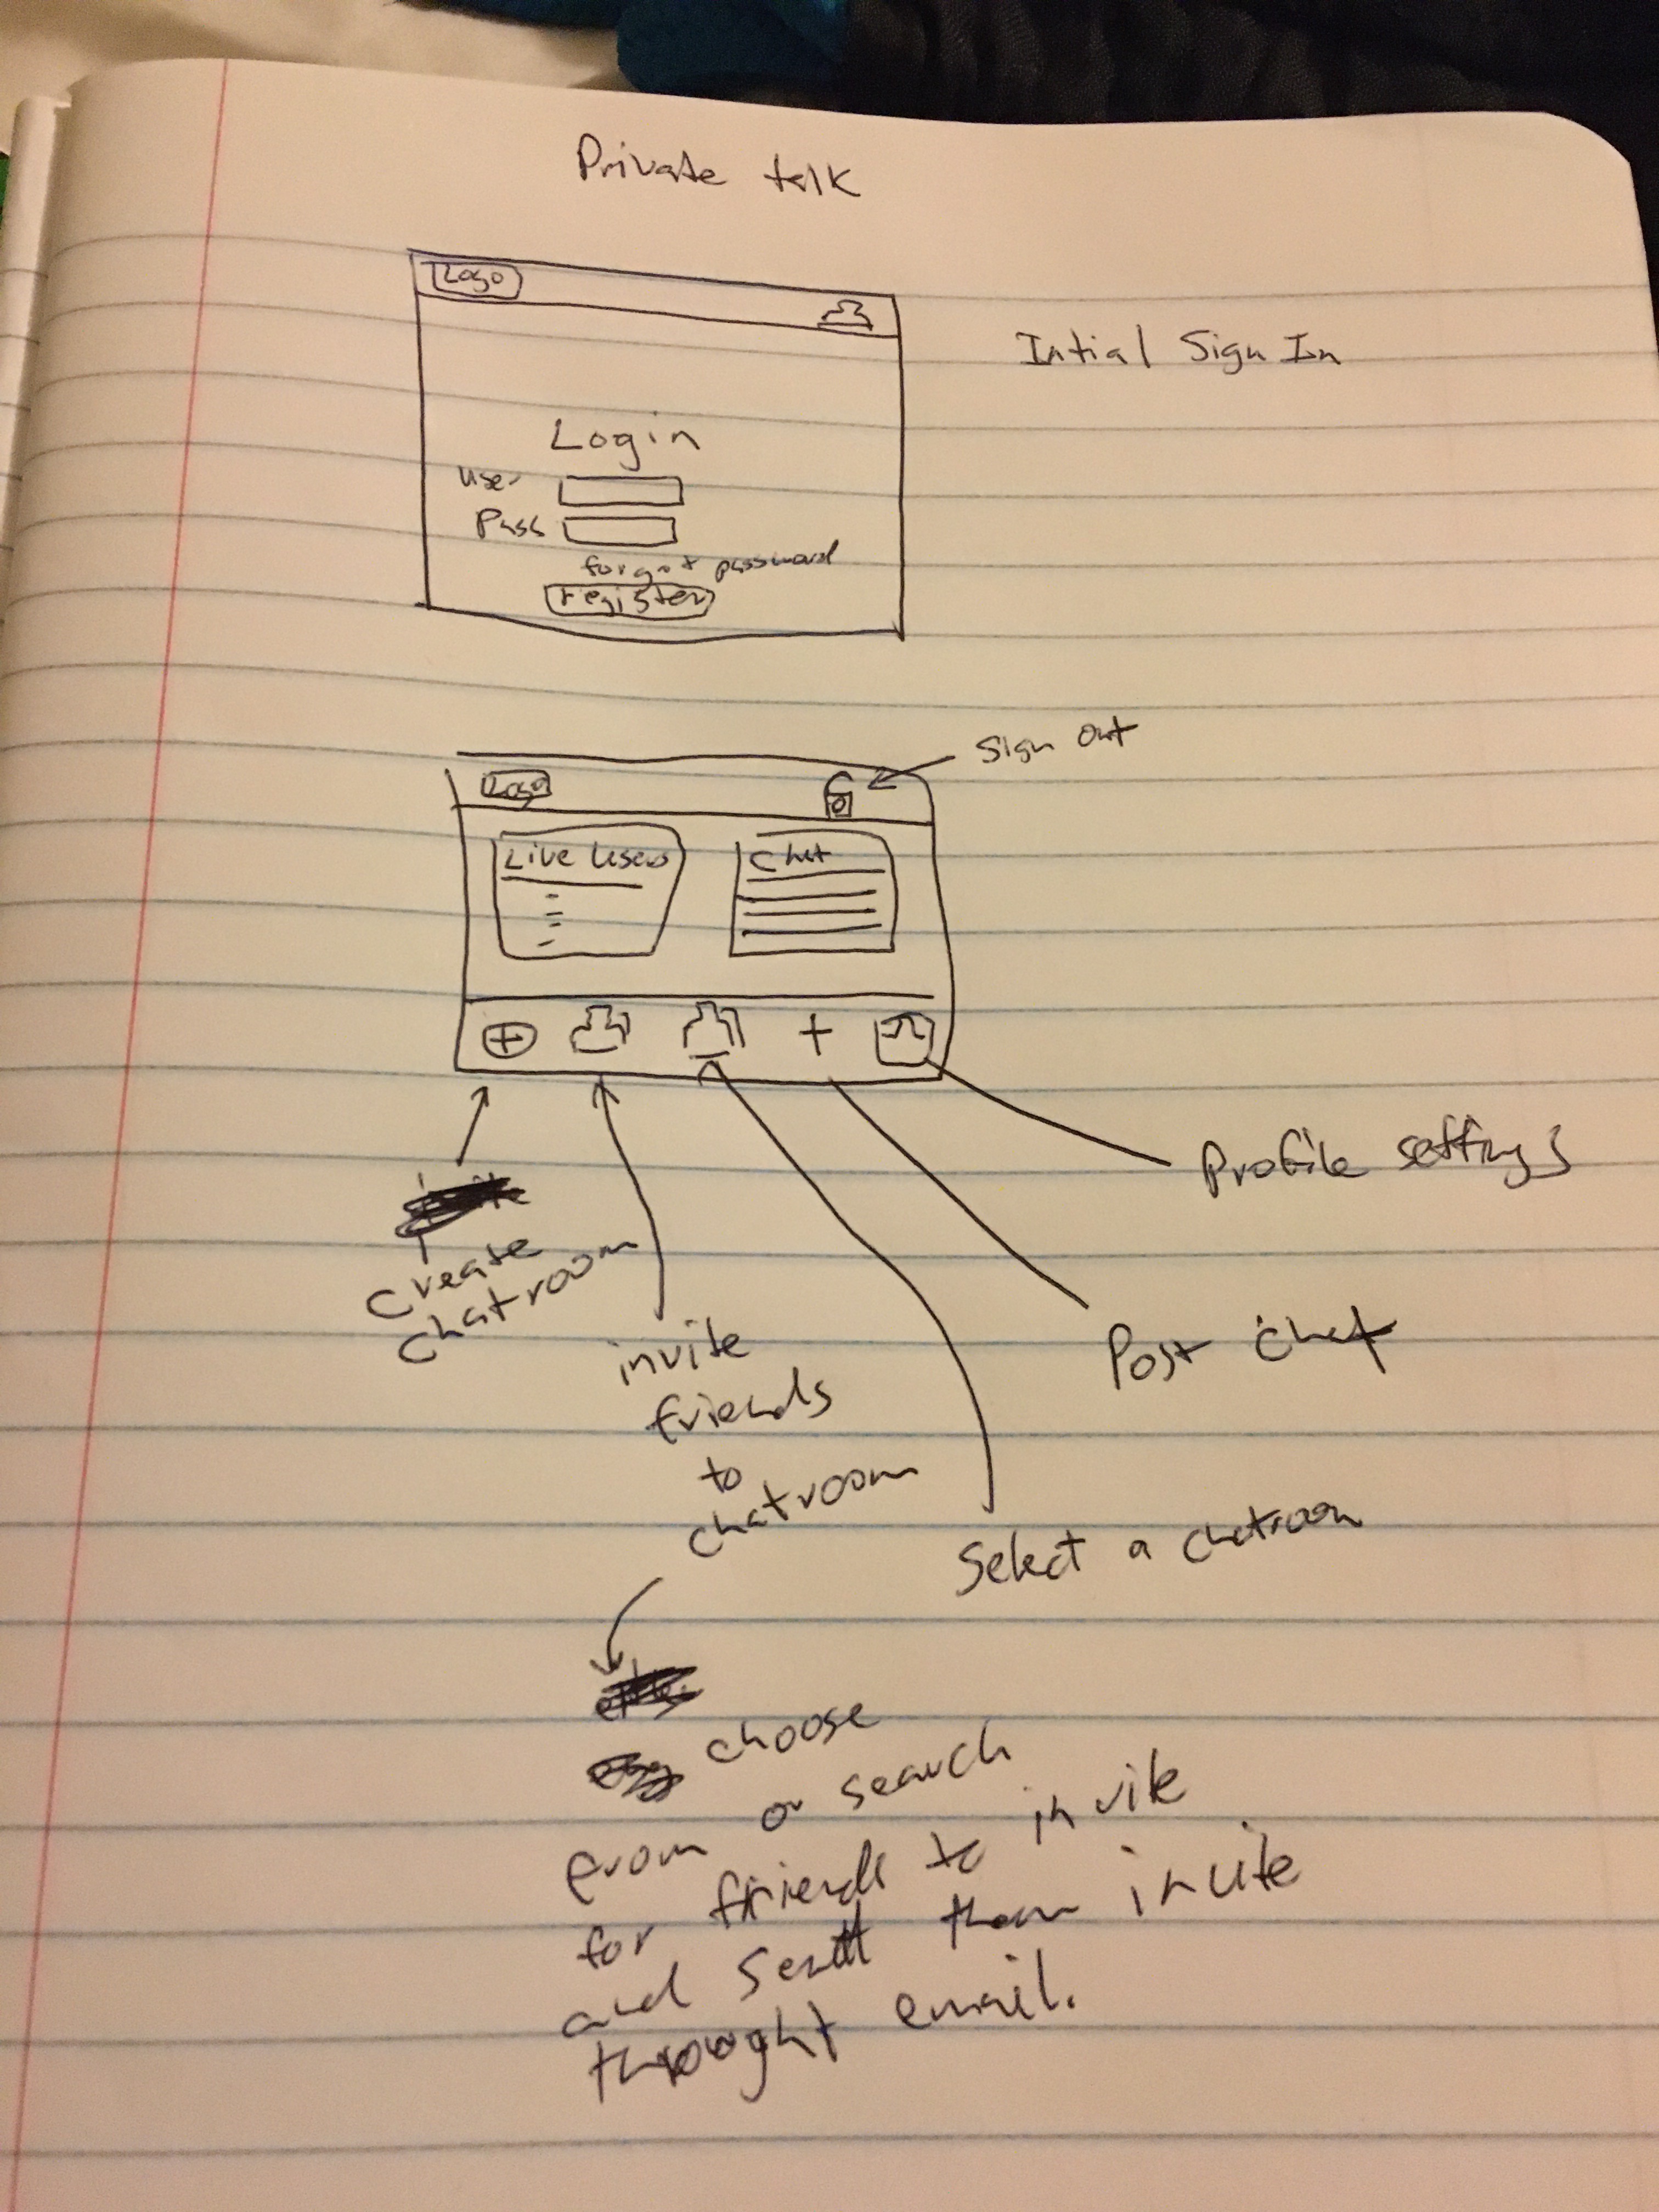 Private talk
Logo
Intial Sign In
Login
User
Pass
forgot password
register
Sign Out
Logo
Live Users
Chat
Profile settings
Create
Chatroom
invite
friends
to
chatroom
Post Chat
Select a chatroom
choose
from or search
for friends to invite
and send them invite
throught email.